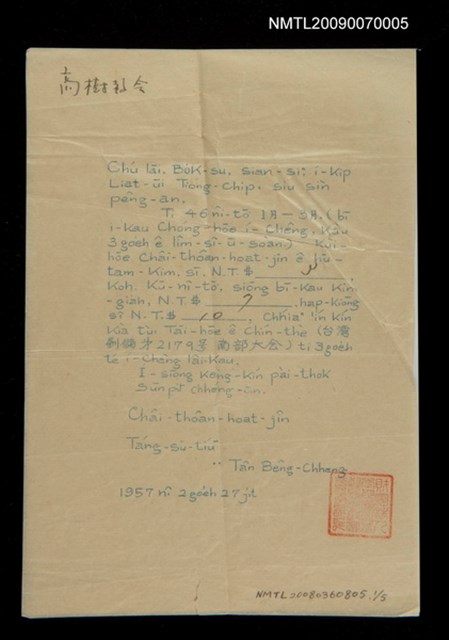 NMTL20090070005
高樹教会
Chú lāi, Bo̍k-su, sian-siⁿ í-kip
Lia̍t-ūi Tióng-chip, siu sìn
pêng-an.
Tī 46 nî-tō͘ 1月一 月, (bī
i-kau Chong-hōe í-Chêng, Kàu
3 goe̍h ê lîm-sî-ū-soàn) Kui-
hōe Châi-thoân-hoat-jîn ê hū-
tam-Kim, sī N.T $
Koh, Kū-nî-tō͘, siōng bī-Kau Kin-
gia̍h, N.T.$ 7 , ha̍p-kiōng
sī N.T.$ 10 , Chhiáⁿ lín kín
Kià tùi Tāi-hōe ê Chín-thù (台灣
劃儲才2179号 南部大会) tī 3 goe̍h
tē í-Chêng lâi-Kau,
Í-siōng Kèng-Kín pài-thok
Sūn pit chhéng-ān.
Châi-thoân-hoat-jîn
Táng-sū-tiúⁿ
Tân Bêng-Chheng
1957 nî 2 goe̍h 27 ji̍t
NMTL 20080360805. 1/5